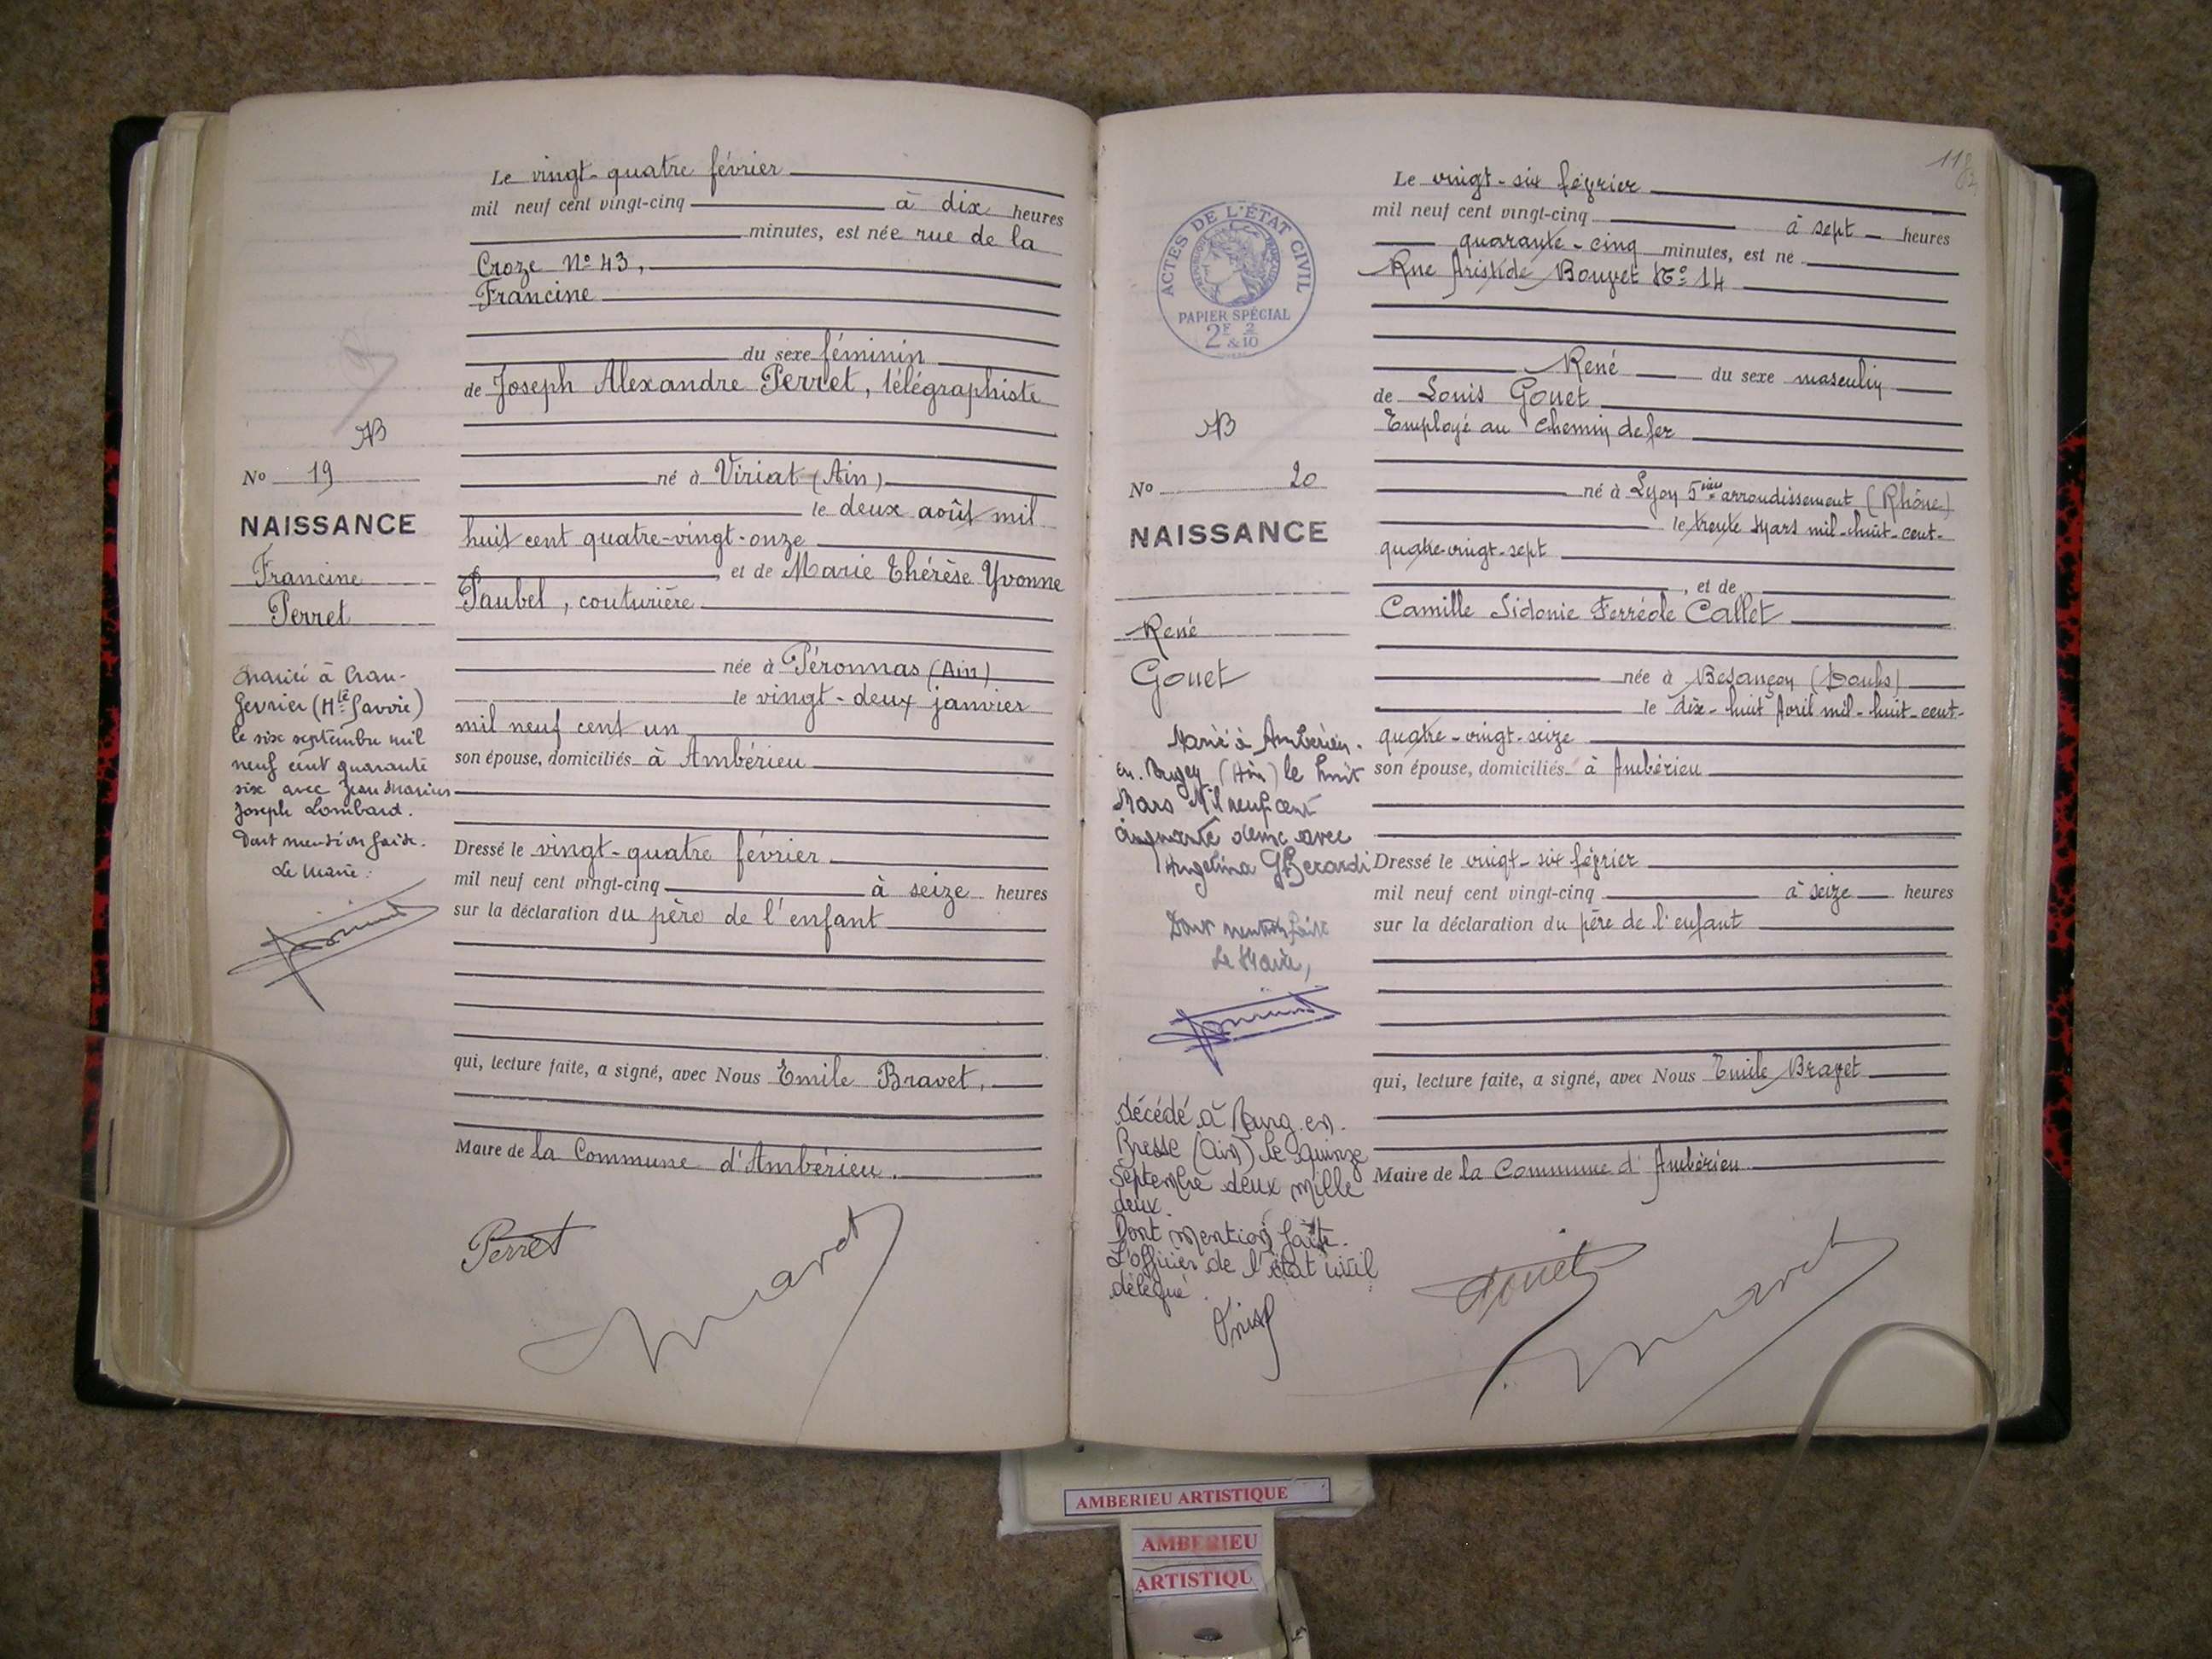 Le vingt-quatre février
mil neuf cent vingt-cinq à dix heures
minutes, est née rue de la
Croze N° 43,
Francine
du sexe féminin
de Joseph Alexandre Perret, télégraphiste
né à Viriat (Ain)
le deux août mil
huit cent quatre-vingt-onze
et de Marie Thérèse Yvonne
Paubel, couturière
née à Péronnas (Ain)
le vingt-deux janvier
mil neuf cent un
son épouse, domiciliés à Ambérieu
Dressé le vingt-quatre février
mil neuf cent vingt-cinq à seize heures
sur la déclaration du père de l'enfant
qui, lecture faite, a signé, avec Nous Emile Bravet,
Maire de la Commune d'Ambérieu.
Perret
AB
No 19
NAISSANCE
Francine
Perret
Marié à Cran-
Gevrier (Hte Savoie)
le six septembre mil
neuf cent quarante
six avec Jean Marius
Joseph Lombard.
Dont mention faite.
Le Maire:
118
Le vingt-six février
mil neuf cent vingt-cinq à sept heures
quarante-cinq minutes, est né
Rue Aristide Bouvet N° 14
René du sexe masculin
de Louis Gouet
Employé au Chemin de fer
né à Lyon 5ième arrondissement (Rhône)
le trente Mars mil-huit-cent-
quatre-vingt-sept
, et de
Camille Sidonie Ferréole Callet
née à Besançon (Doubs)
le dix-huit Avril mil-huit-cent-
quatre-vingt-seize
son épouse, domiciliés à Ambérieu
Dressé le vingt-six février
mil neuf cent vingt-cinq à seize heures
sur la déclaration du père de l'enfant
qui, lecture faite, a signé, avec Nous Emile Bravet
Maire de la Commune d'Ambérieu
Gouet
ACTES DE L'ÉTAT CIVIL
PAPIER SPÉCIAL
2F 2
& 10
AB
No 20
NAISSANCE
René
Gouet
Marié à Ambérieu-
en-Bugey (Ain) le huit
Mars Mil neuf cent
cinquante deux avec
Angelina Gherardi
Dont mention faite
Le Maire,
décédé à Bourg-en-
Bresse (Ain) le quinze
Septembre deux mille
deux.
Dont mention faite.
L'officier de l'état civil
délégué.
AMBERIEU ARTISTIQUE
AMBERIEU
ARTISTIQU